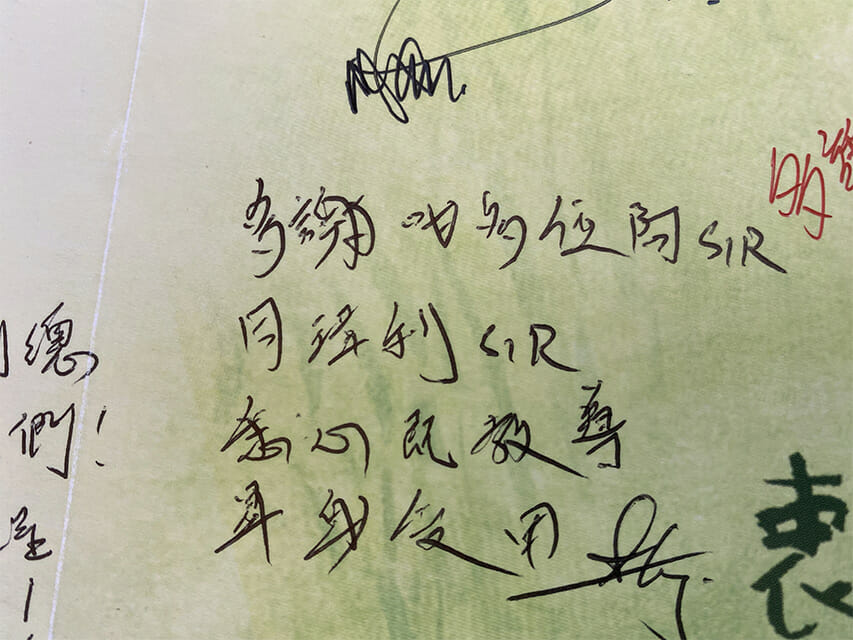 多謝咁多位阿SIR
同利SIR
悉心既教導
畢身受用
總
們！
明
袁